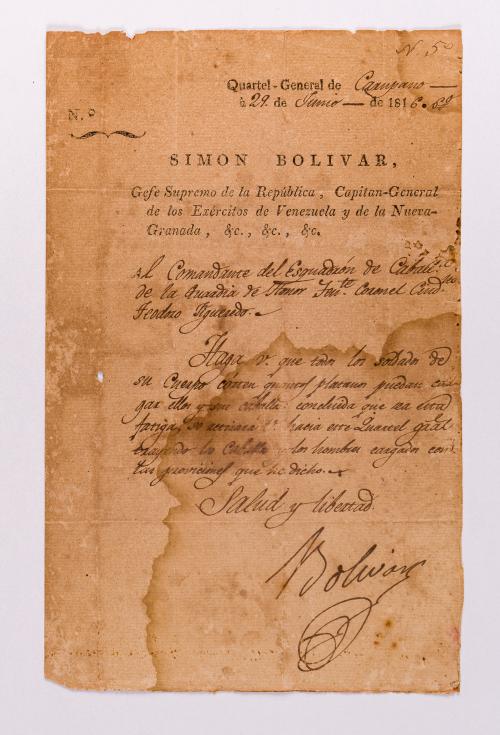 N. 5º
Quartel-General de Carupano
à 29 de Junio de 1816. 6º
N.º
SIMON BOLIVAR,
Gefe Supremo de la República, Capitan-General
de los Exércitos de Venezuela y de la Nueva-
Granada, &c., &c., &c.
Al Comandante del Esquadrón de Caball.ª
de la Guardia de Honor Ten.te Coronel Ciud.no
Teodoro Figueredo.
Haga V. que todos los soldados de
su Cuerpo corten quantos platanos puedan car-
gar ellos y sus caballos: concluida que sea esta
fatiga, se retirará V. hacia este Quartel gral
trayendo los Caballos y los hombres cargados con
las provisiones que he dicho.
Salud y libertad.
Bolivar